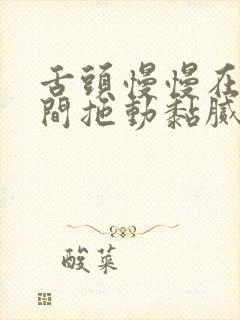 舌頭慢慢在
間拖動黏膩
酸菜